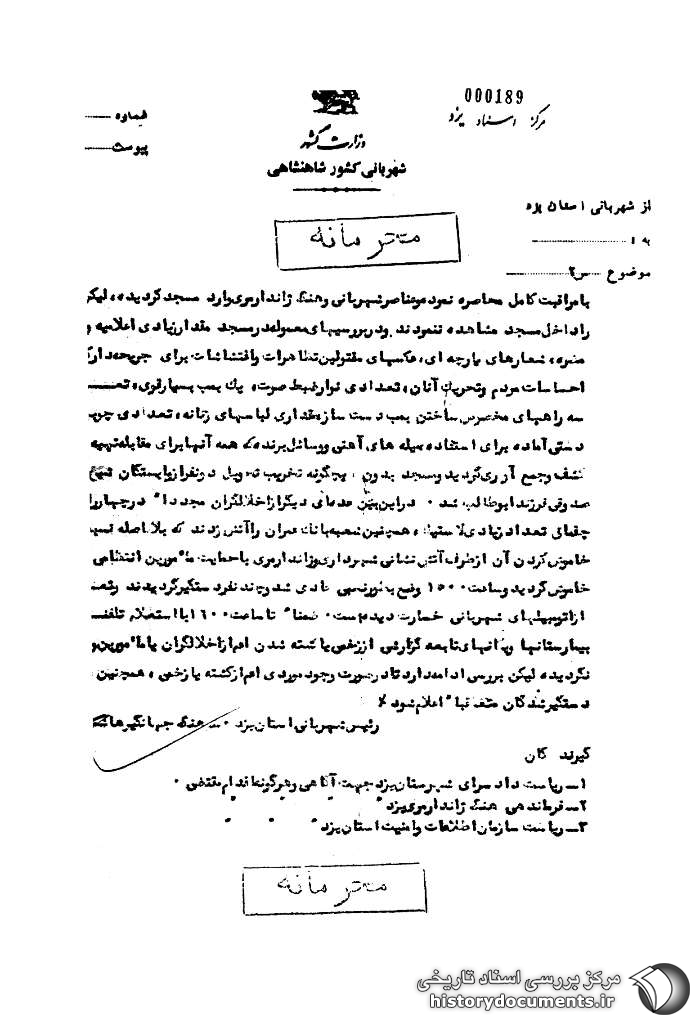 000189
مرکز اسناد یزد
شماره
پیوست
وزارت کشور
شهربانی کشور شاهنشاهی
از شهربانی استان یزد
به
موضوع
محرمانه
بامراقبت کامل محاصره نموده وعناصر شهربانی وهنگ ژاندارمری وارد مسجد گردیده، لیکن
راداخل مسجد مشاهده ننمودند ودربررسیهای معموله در مسجد مقدارزیادی اعلامیه و
مضره، شعارهای پارچه ای، عکسهای مقتولین تظاهرات واغتشاشات برای جریحه دار
احساسات مردم وتحریک آنان، تعدادی نوارضبط صوت، یک بمب بسیارقوی،
سه راهیهای مخصوص ساختن بمب دست سازمقداری لباسهای زنانه، تعدادی چوب
دستی آماده برای استفاده میله های آهنی ووسائل برنده که همه آنها برای مقابله تهیه
کشف وجمع آوری گردید ومسجد بدون هیچگونه تخریب تحویل دونفرازوابستگان شیخ
صدوقی فرزند ابوطالب شد ۰ دراین بین عده ای دیگرازاخلالگران مجددا" درچهارراه
تعداد زیادی لاستیک، همچنین شعبه بانک عمران راآتش زدند که بلافاصله نسبت
خاموش کردن آن ازطرف آتش نشانی شهرداری وژاندارمری باحمایت مأمورین انتظامی
خاموش گردید وساعت ۱۵۰۰ وضع بطورنسبی عادی شد وچند نفردستگیرگردیدند
ازاتومبیلهای شهربانی خسارت دیده است۰ ضمنا" تاساعت ۱۶۰۰ بااستعلام تلفنی
بیمارستانها ویگانهای تابعه گزارشی اززخمی یاکشته شدن اعم ازاخلالگران یامأمورین و
نگردیده لیکن بررسی ادامه دارد تادرصورت وجود موردی اعم ازکشته یازخمی، همچنین
دستگیرشدگان متعاقبا" اعلام شود٪
رئیس شهربانی استان یزد ۰ سرهنگ جهانگیر
گیرندگان
۱ـ ریاست دادسرای شهرستان یزد جهت آگاهی وهرگونه اقدام مقتضی ۰
۲ـ فرماندهی هنگ ژاندارمری یزد " " "
۳ـ ریاست سازمان اطلاعات وامنیت استان یزد " " "
محرمانه
مرکز بررسی اسناد تاریخی
historydocuments.ir